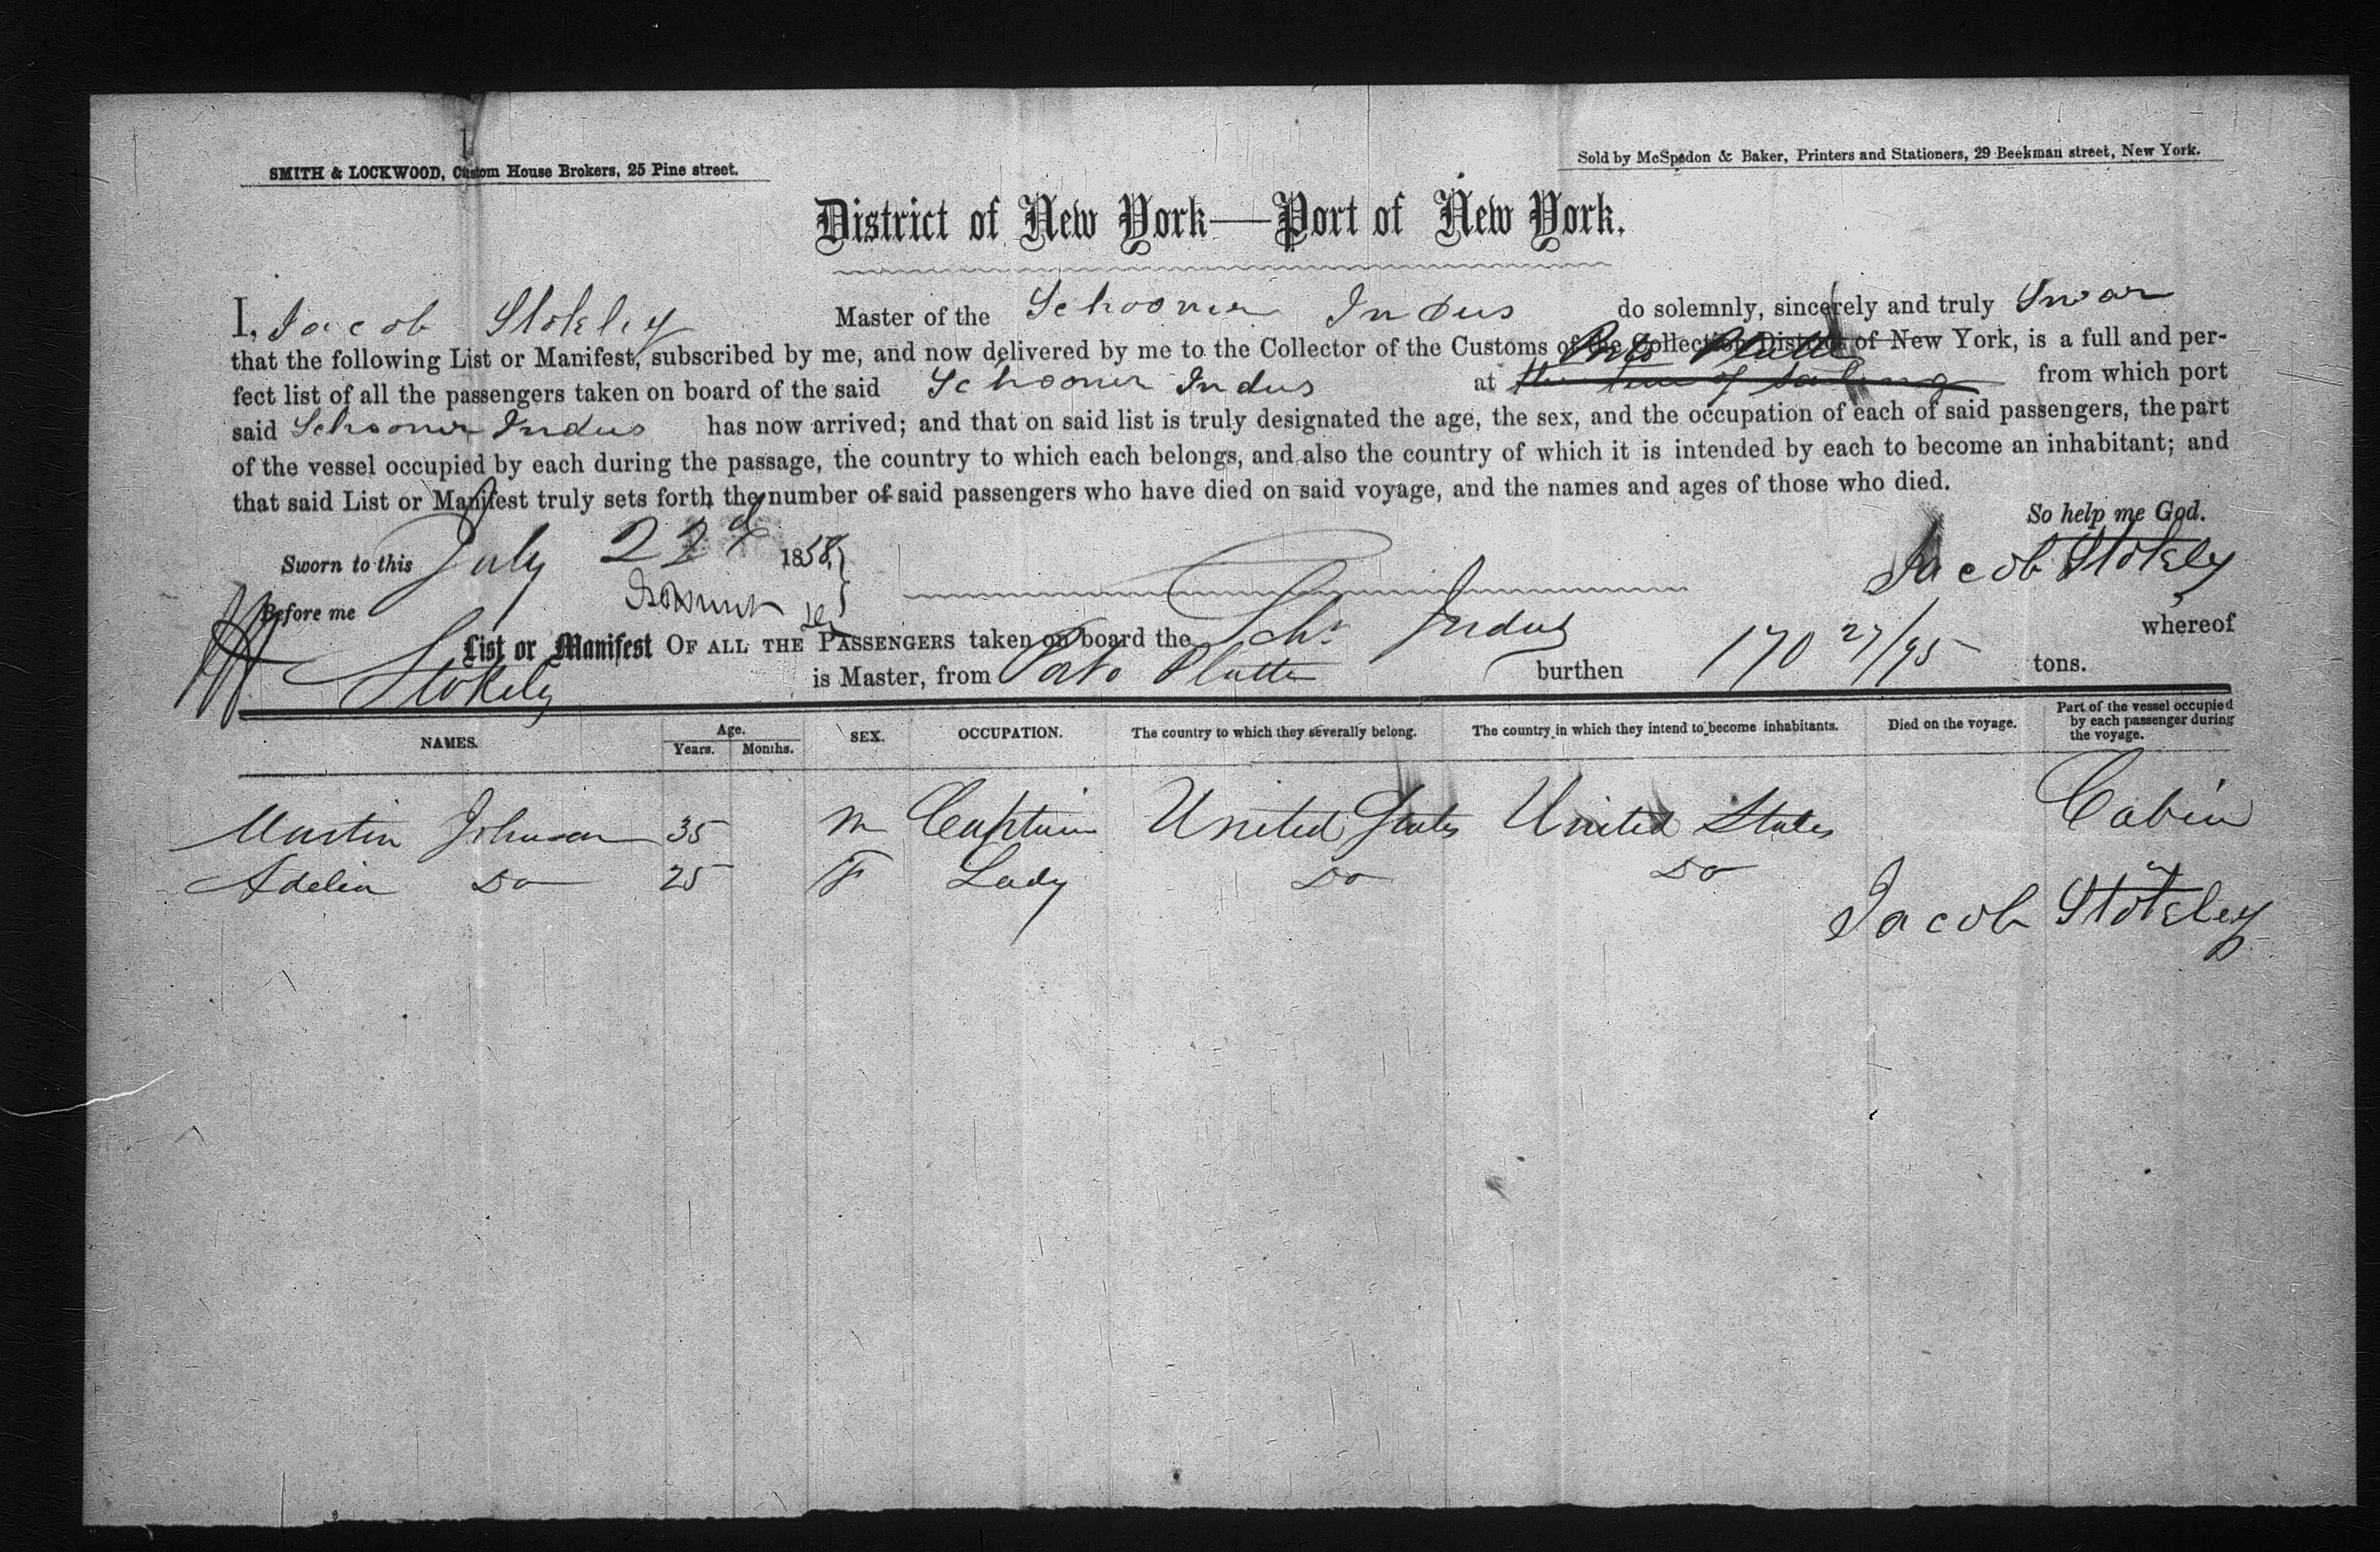 SMITH & LOCKWOOD, Custom House Brokers, 25 Pine street.
Sold by McSpedon & Baker, Printers and Stationers, 29 Beekman street, New York.
District of New York—Port of New York.
I, Jacob Stokley Master of the Schooner Indus do solemnly, sincerely and truly Swear
that the following List or Manifest, subscribed by me, and now delivered by me to the Collector of the Customs of the Collection District of New York, is a full and per-
Porto Platte
fect list of all the passengers taken on board of the said Schooner Indus at the time of sailing from which port
said Schooner Indus has now arrived; and that on said list is truly designated the age, the sex, and the occupation of each of said passengers, the part
of the vessel occupied by each during the passage, the country to which each belongs, and also the country of which it is intended by each to become an inhabitant; and
that said List or Manifest truly sets forth the number of said passengers who have died on said voyage, and the names and ages of those who died.
So help me God.
Sworn to this July 22d 1858, Jacob Stokley
Before me
List or Manifest OF ALL THE PASSENGERS taken on board the Schr Indus whereof
Stokely is Master, from Porto Platte burthen 170 27/95 tons.
NAMES. Age. Years. Months. SEX. OCCUPATION. The country to which they severally belong. The country in which they intend to become inhabitants. Died on the voyage. Part of the vessel occupied by each passenger during the voyage.
Martin Johnson 35 M Captain United States United States Cabin
Adelia Do 25 F Lady Do Do "
Jacob Stokley